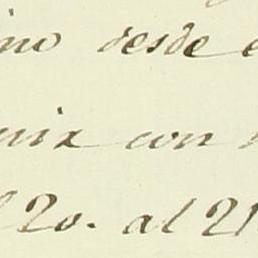 ino desde
nix con
20. al 21